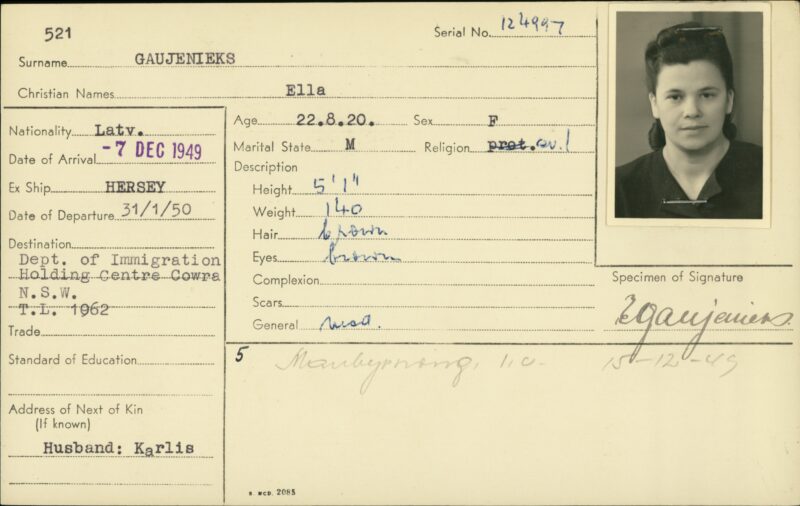 521
Serial No. 124997
Surname GAUJENIEKS
Christian Names Ella
Nationality Latv.
Date of Arrival -7 DEC 1949
Ex Ship HERSEY
Date of Departure 31/1/50
Destination
Dept. of Immigration
Holding Centre Cowra
N.S.W.
T.L. 1962
Trade
Standard of Education
Address of Next of Kin
(If known)
Husband: Karlis
Age 22.8.20. Sex F
Marital State M Religion prot. ev.l
Description
Height 5'1"
Weight 140
Hair brown
Eyes brown
Complexion
Scars
General
Specimen of Signature
EGaujenieks.
5 15-12-49
R. MCD. 2085